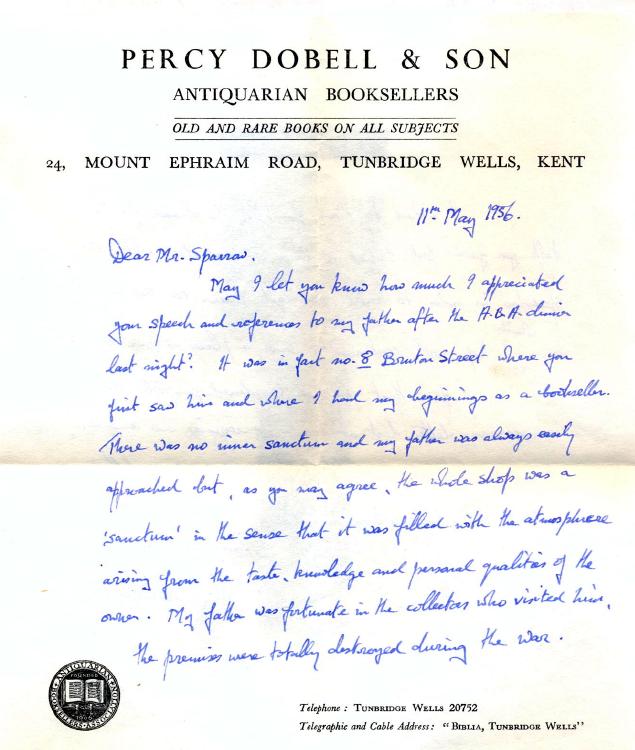 PERCY DOBELL & SON
ANTIQUARIAN BOOKSELLERS
OLD AND RARE BOOKS ON ALL SUBJECTS
24, MOUNT EPHRAIM ROAD, TUNBRIDGE WELLS, KENT
11th May 1956.
Dear Mr. Sparrow.
May I let you know how much I appreciated
your speech and references to my father after the A.B.A. dinner
last night? It was in fact no. 8 Bruton Street where you
first saw him and where I had my beginnings as a bookseller.
There was no inner sanctum and my father was always easily
approached but, as you may agree, the whole shop was a
'sanctum' in the sense that it was filled with the atmosphere
arising from the taste, knowledge and personal qualities of the
owner. My father was fortunate in the collectors who visited him.
The premises were totally destroyed during the war.
ANTIQUARIAN BOOKSELLERS ASSOCIATION
FOUNDED
1906
Telephone: TUNBRIDGE WELLS 20752
Telegraphic and Cable Address: "BIBLIA, TUNBRIDGE WELLS"